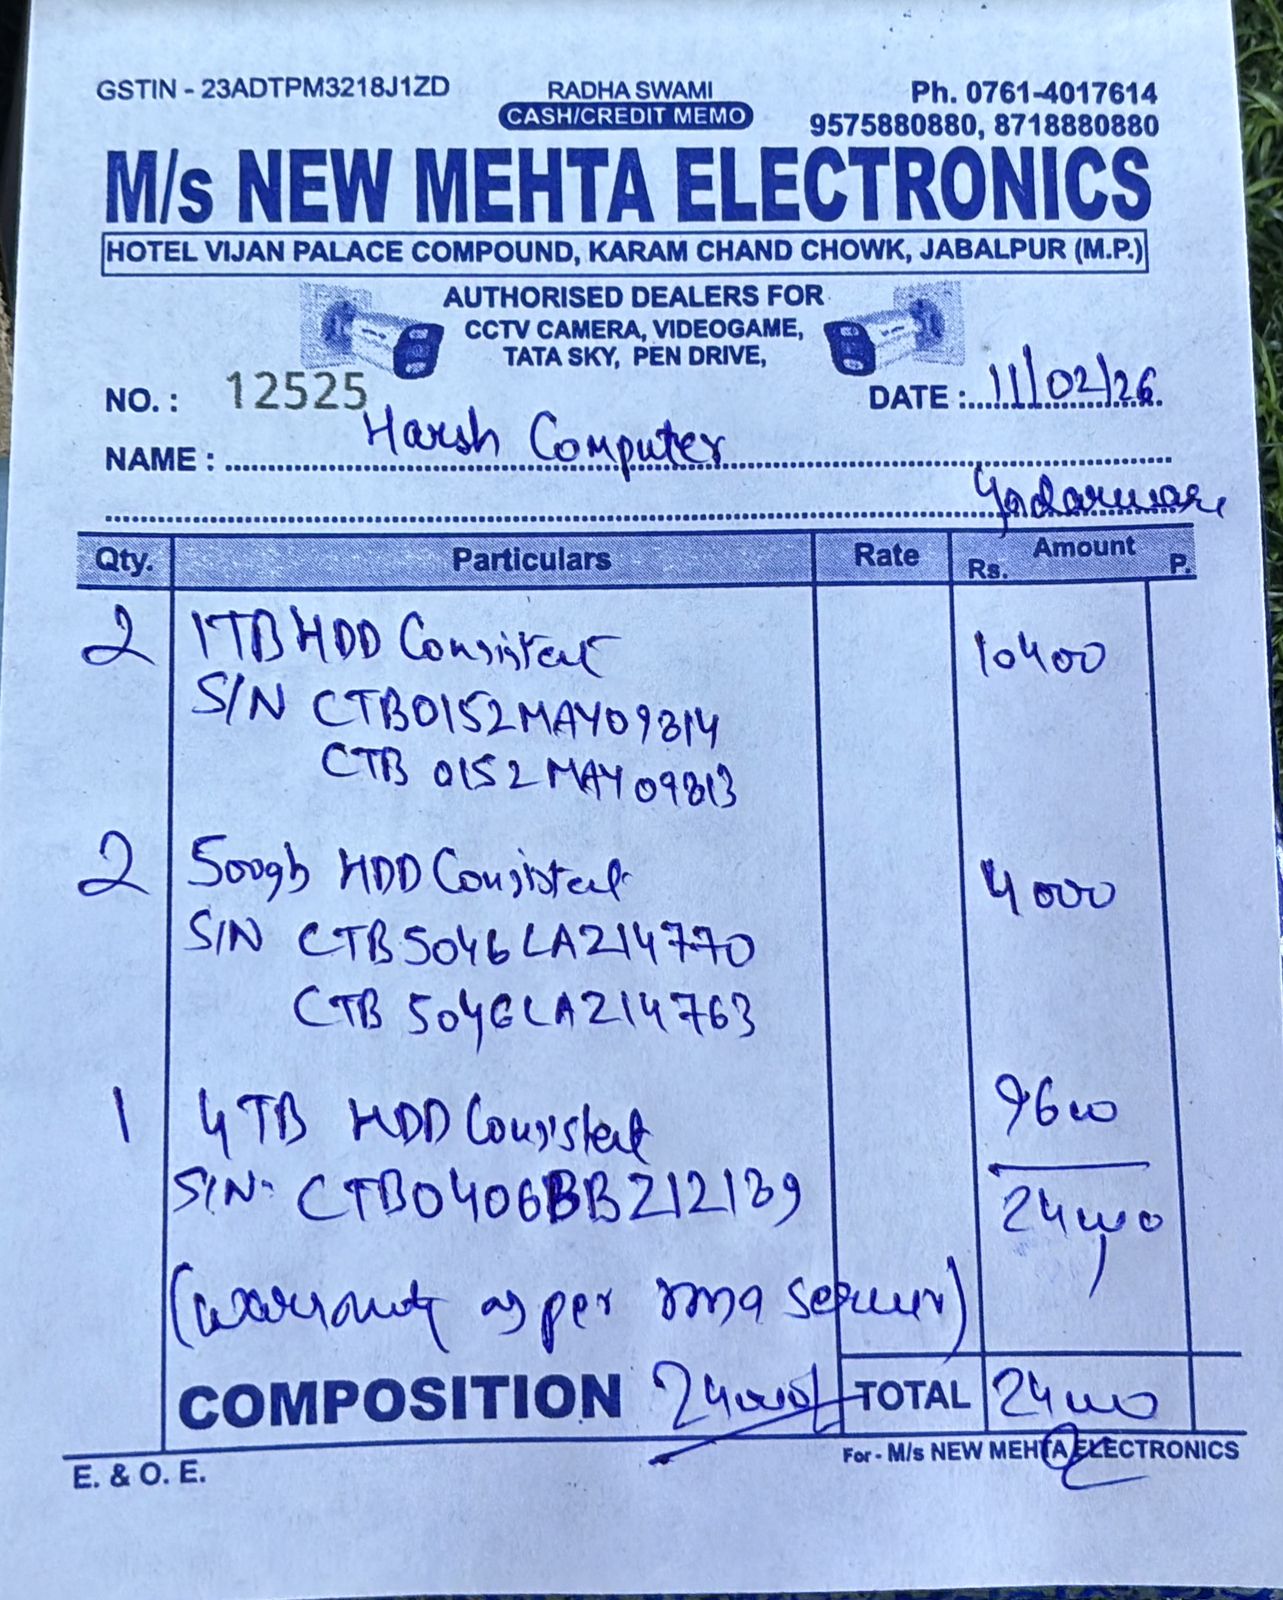 GSTIN - 23ADTPM3218J1ZD
RADHA SWAMI
CASH/CREDIT MEMO
Ph. 0761-4017614
9575880880, 8718880880
M/s NEW MEHTA ELECTRONICS
HOTEL VIJAN PALACE COMPOUND, KARAM CHAND CHOWK, JABALPUR (M.P.)
AUTHORISED DEALERS FOR
CCTV CAMERA, VIDEOGAME,
TATA SKY, PEN DRIVE,
NO. : 12525
DATE : 11/02/26
NAME : Harsh Computer
Qty. Particulars Rate Amount Rs. P.
2 1TB HDD Consistent 10400
S/N CTB0152MAY09814
CTB 0152MAY09813
2 500gb HDD Consistent 4000
S/N CTB5046LA214770
CTB 5046LA214763
1 4TB HDD Consistent 9600
S/N- CTB0406BBZ12139
24000
(warranty as per rma server)
COMPOSITION 24000/ TOTAL 24000
For - M/s NEW MEHTA ELECTRONICS
E. & O. E.